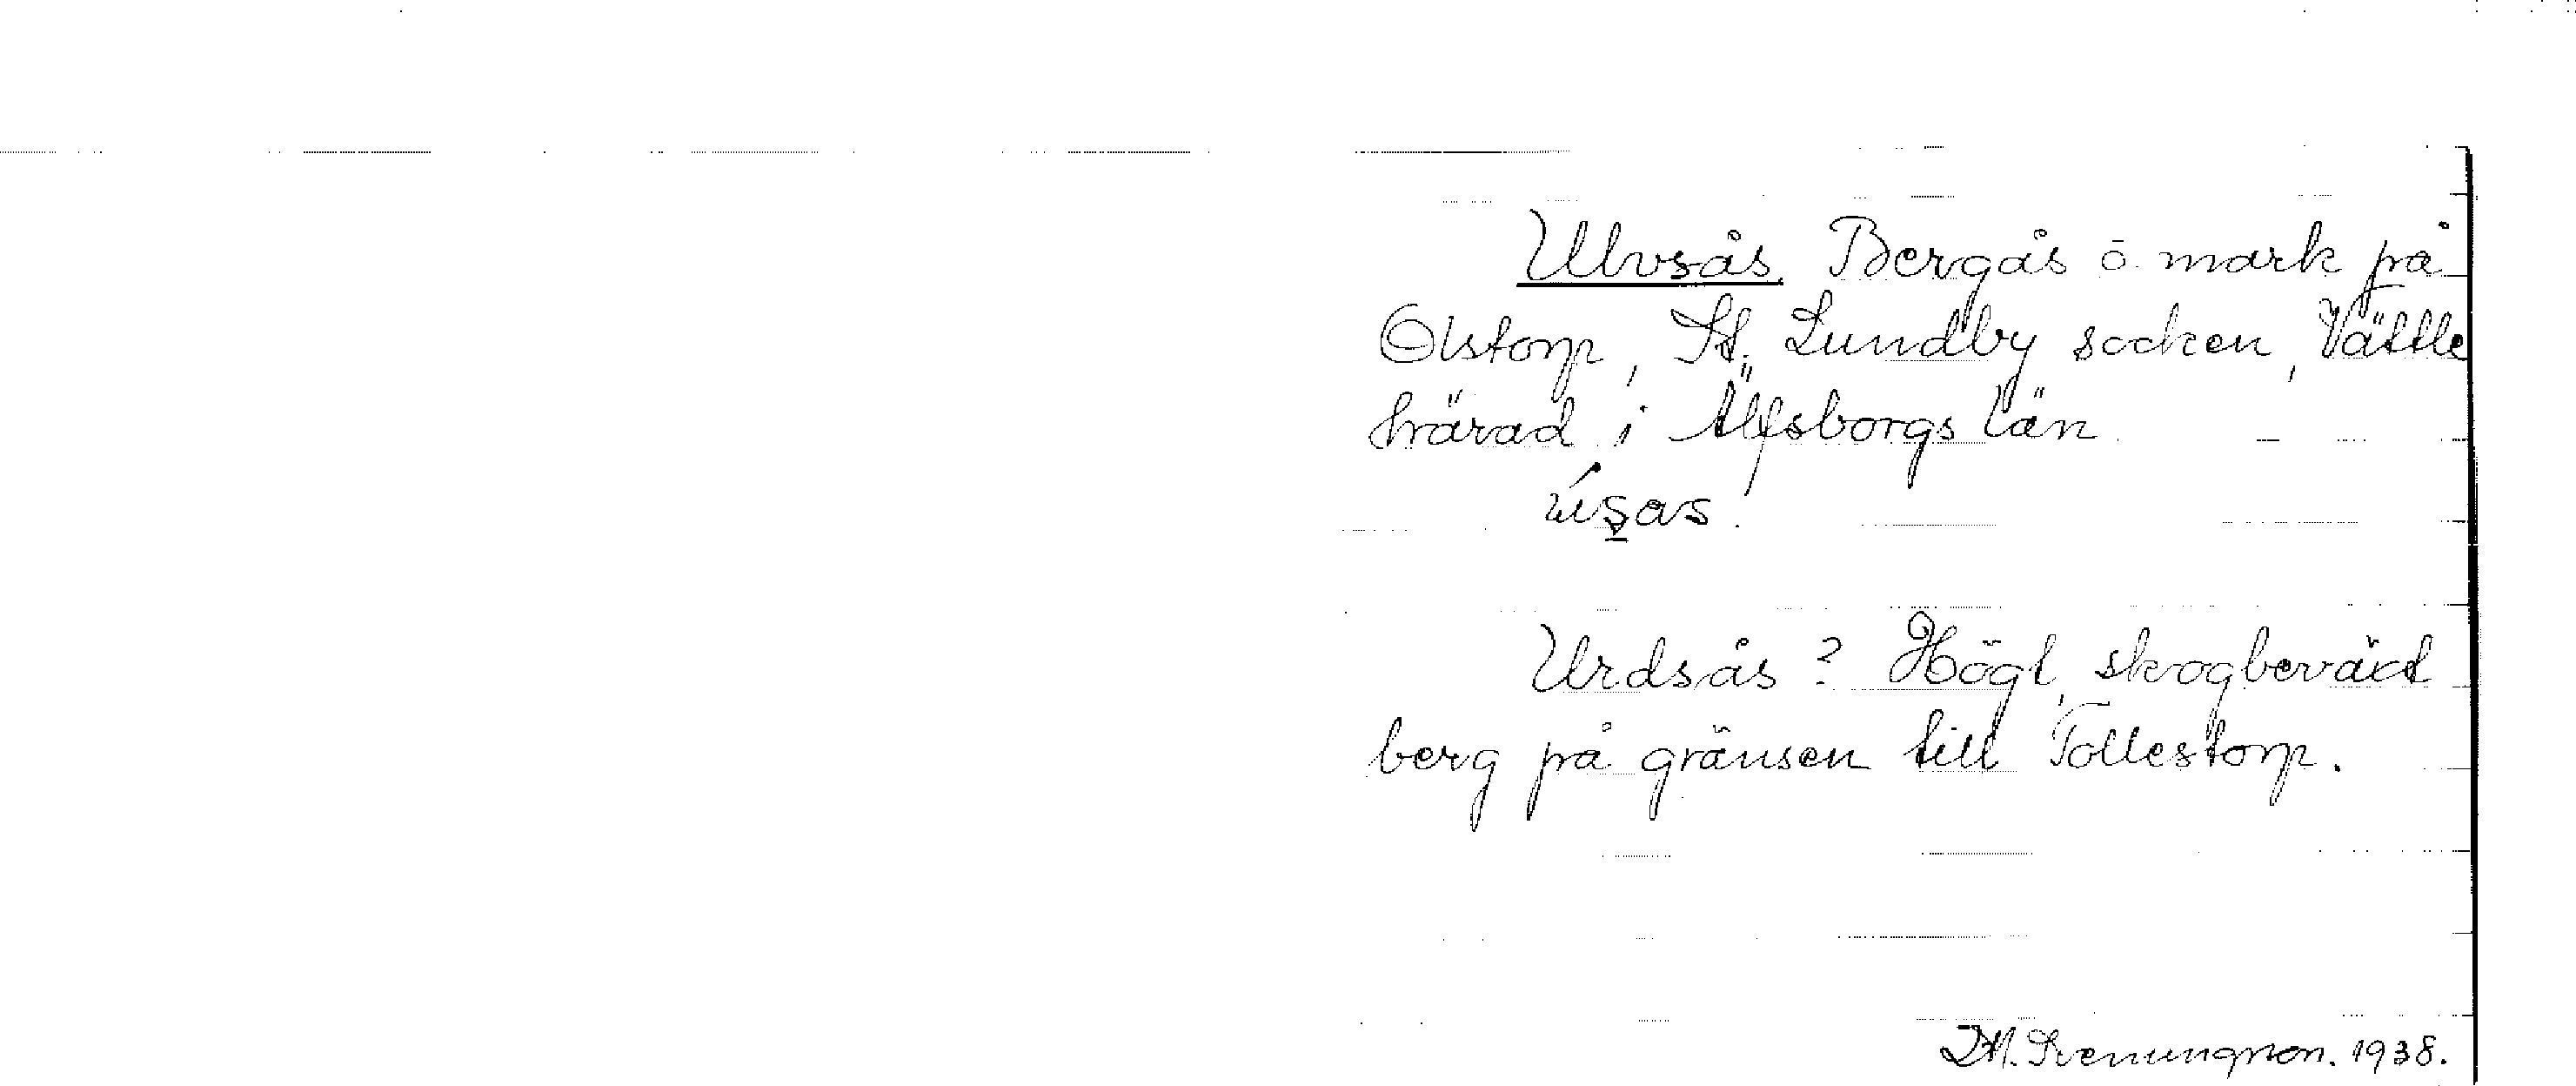 Ulvsås. Bergås ö. mark på
Olstorp, St. Lundby socken, Vättle
härad i Älfsborgs län
úşas.
Urdsås? Högt, skogbeväxt
berg på gränsen till Tollestorp.
M. Svenungsson. 1938.